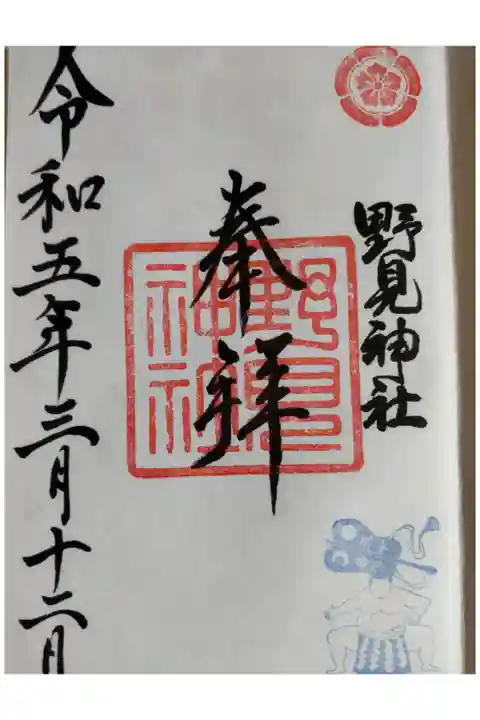 野見神社
奉拝
野見
神社
令和五年三月十二日